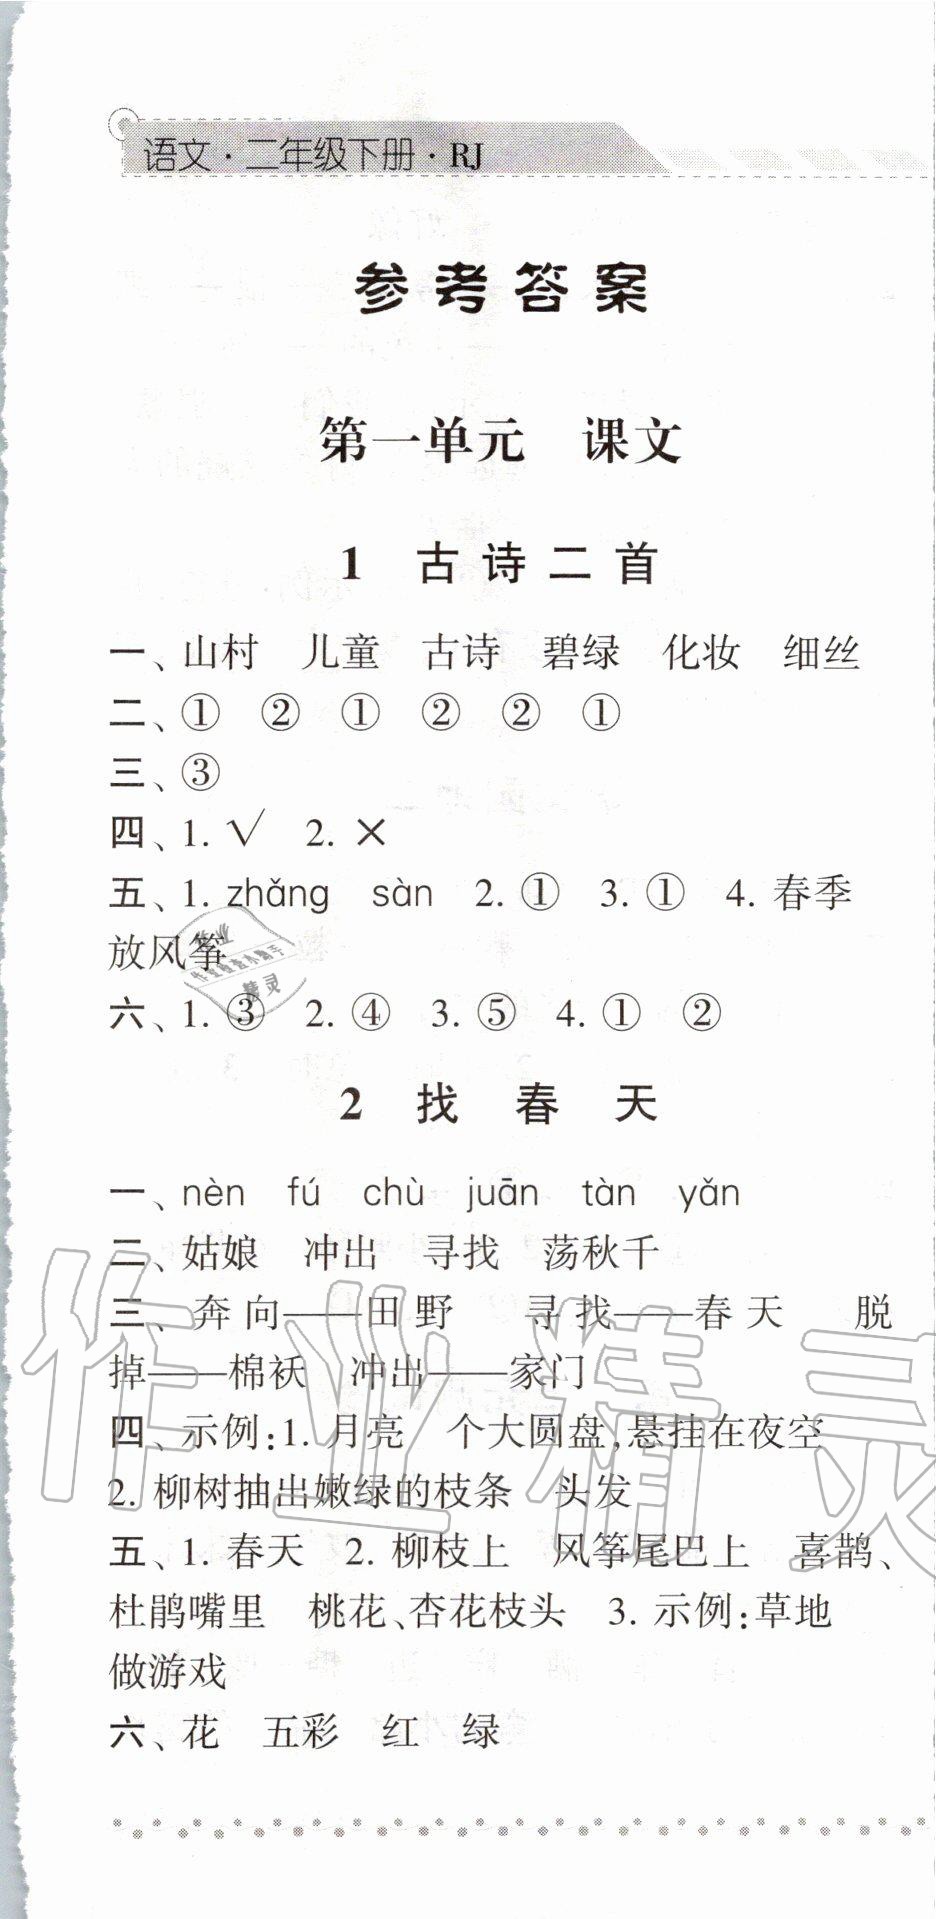 语文·二年级下册·RJ
参考答案
第一单元 课文
1 古诗二首
一、山村 儿童 古诗 碧绿 化妆 细丝
二、① ② ① ② ② ①
三、③
四、1. √ 2. ×
五、1. zhǎng sàn 2. ① 3. ① 4. 春季
放风筝
六、1. ③ 2. ④ 3. ⑤ 4. ① ②
2 找春天
一、nèn fú chù juān tàn yǎn
二、姑娘 冲出 寻找 荡秋千
三、奔向——田野 寻找——春天 脱
掉——棉袄 冲出——家门
四、示例:1. 月亮 个大圆盘,悬挂在夜空
2. 柳树抽出嫩绿的枝条 头发
五、1. 春天 2. 柳枝上 风筝尾巴上 喜鹊、
杜鹃嘴里 桃花、杏花枝头 3. 示例:草地
做游戏
六、花 五彩 红 绿
作业精灵
作业
作业检查小助手
精灵